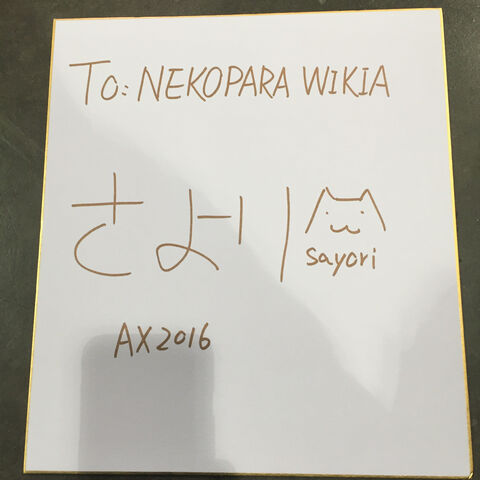 To: NEKOPARA WIKIA
さより
sayori
AX2016